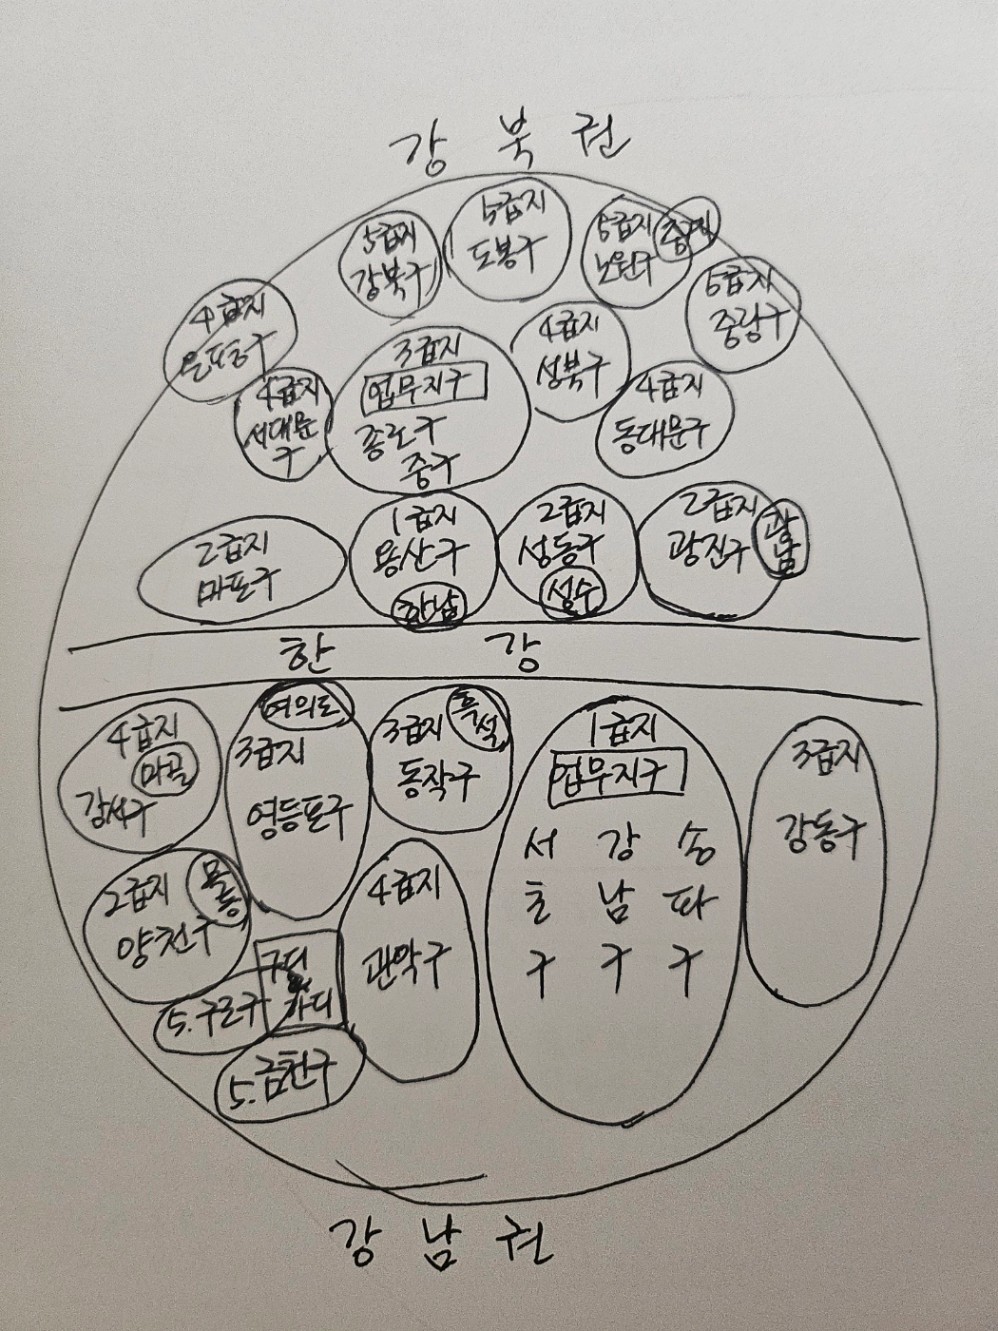 강 북 권
5급지
도봉구
5급지
강북구
5급지
노원구
5급지
중랑구
4급지
은평구
4급지
성북구
3급지
업무지구
종로구
중구
4급지
서대문
구
4급지
동대문구
1급지
용산구
한남
2급지
성동구
성수
2급지
광진구
광남
2급지
마포구
한 강
4급지
마곡
강서구
여의도
3급지
영등포구
3급지
흑석
동작구
1급지
업무지구
서 강 송
초 남 파
구 구 구
3급지
강동구
2급지
목동
양천구
4급지
관악구
구디
가디
5.구로구
5.금천구
강 남 권